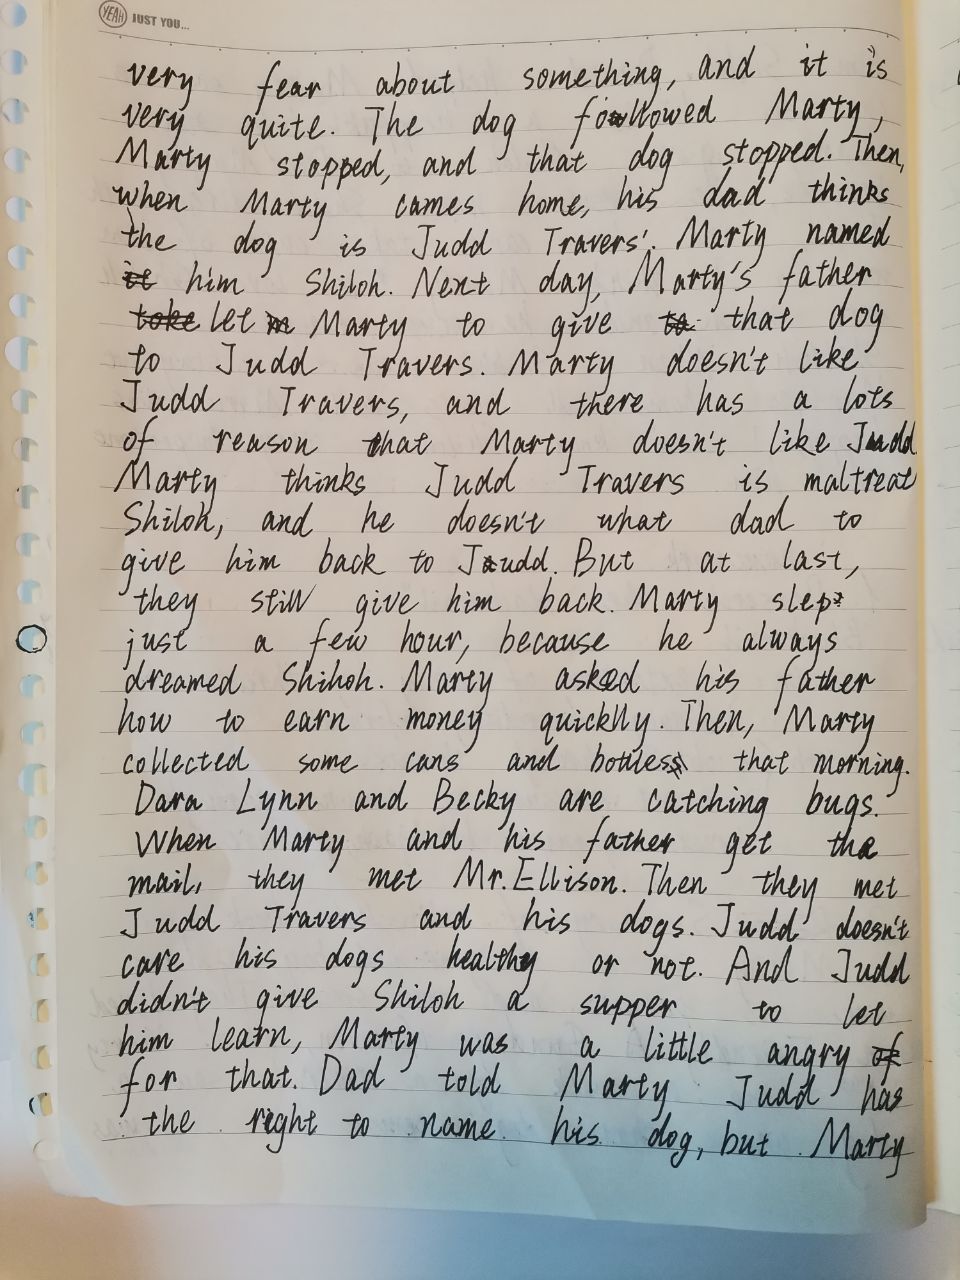 YEAH JUST YOU...
very fear about something, and it is
very quite. The dog followed Marty,
Marty stopped, and that dog stopped. Then,
when Marty cames home, his dad thinks
the dog is Judd Travers'. Marty named
it him Shiloh. Next day, Marty's father
toke let m Marty to give to that dog
to Judd Travers. Marty doesn't like
Judd Travers, and there has a lots
of reason that Marty doesn't like Judd
Marty thinks Judd Travers is maltreat
Shiloh, and he doesn't what dad to
give him back to Judd. But at last,
they still give him back. Marty slept
just a few hour, because he always
dreamed Shihoh. Marty asked his father
how to earn money quicklly. Then, Marty
collected some cans and bottles that morning.
Dara Lynn and Becky are catching bugs.
When Marty and his father get the
mail, they met Mr. Ellison. Then they met
Judd Travers and his dogs. Judd doesn't
care his dogs healthy or not. And Judd
didn't give Shiloh a supper to let
him learn, Marty was a little angry of
for that. Dad told Marty Judd has
the right to name his dog, but Marty